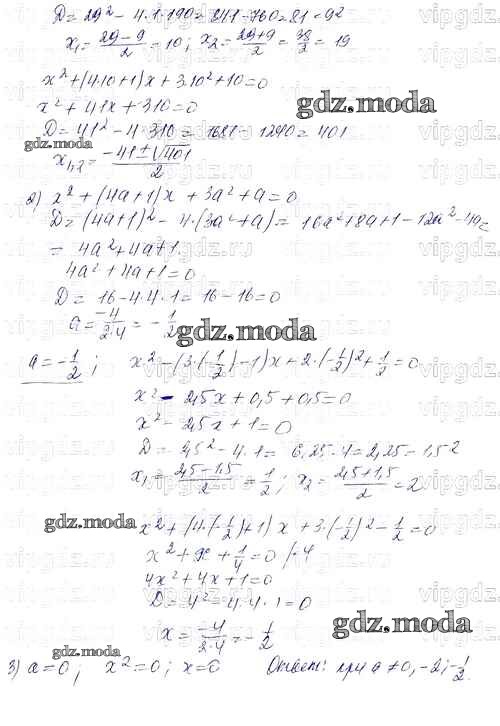 D = 29² - 4·1·190 = 841 - 760 = 81 = 9²
x₁ = (29-9)/2 = 10; x₂ = (29+9)/2 = 38/2 = 19
x² + (4·10+1)x + 3·10² + 10 = 0
gdz.moda
x² + 41x + 310 = 0
D = 41² - 4·310 = 1681 - 1240 = 401
gdz.moda
x₁,₂ = (-41 ± √401)/2
2) x² + (4a+1)x + 3a² + a = 0
D = (4a+1)² - 4·(3a²+a) = 16a² + 8a + 1 - 12a² - 4a =
= 4a² + 4a + 1
4a² + 4a + 1 = 0
D = 16 - 4·4·1 = 16 - 16 = 0
a = -4/(2·4) = -1/2
gdz.moda
a = -1/2; x² - (3·(-1/2) - 1)x + 2·(-1/2)² + 1/2 = 0
x² - 2,5x + 0,5 + 0,5 = 0
x² - 2,5x + 1 = 0
D = 2,5² - 4·1 = 6,25 - 4 = 2,25 = 1,5²
x₁ = (2,5-1,5)/2 = 1/2; x₂ = (2,5+1,5)/2 = 2
gdz.moda
x² + (4·(-1/2)+1)x + 3·(-1/2)² - 1/2 = 0
x² + x + 1/4 = 0 |·4
4x² + 4x + 1 = 0
D = 4² - 4·4·1 = 0
x = -4/(2·4) = -1/2
gdz.moda
gdz.moda
3) a = 0; x² = 0; x = 0 Ответ: при a ≠ 0, -2; -1/2.